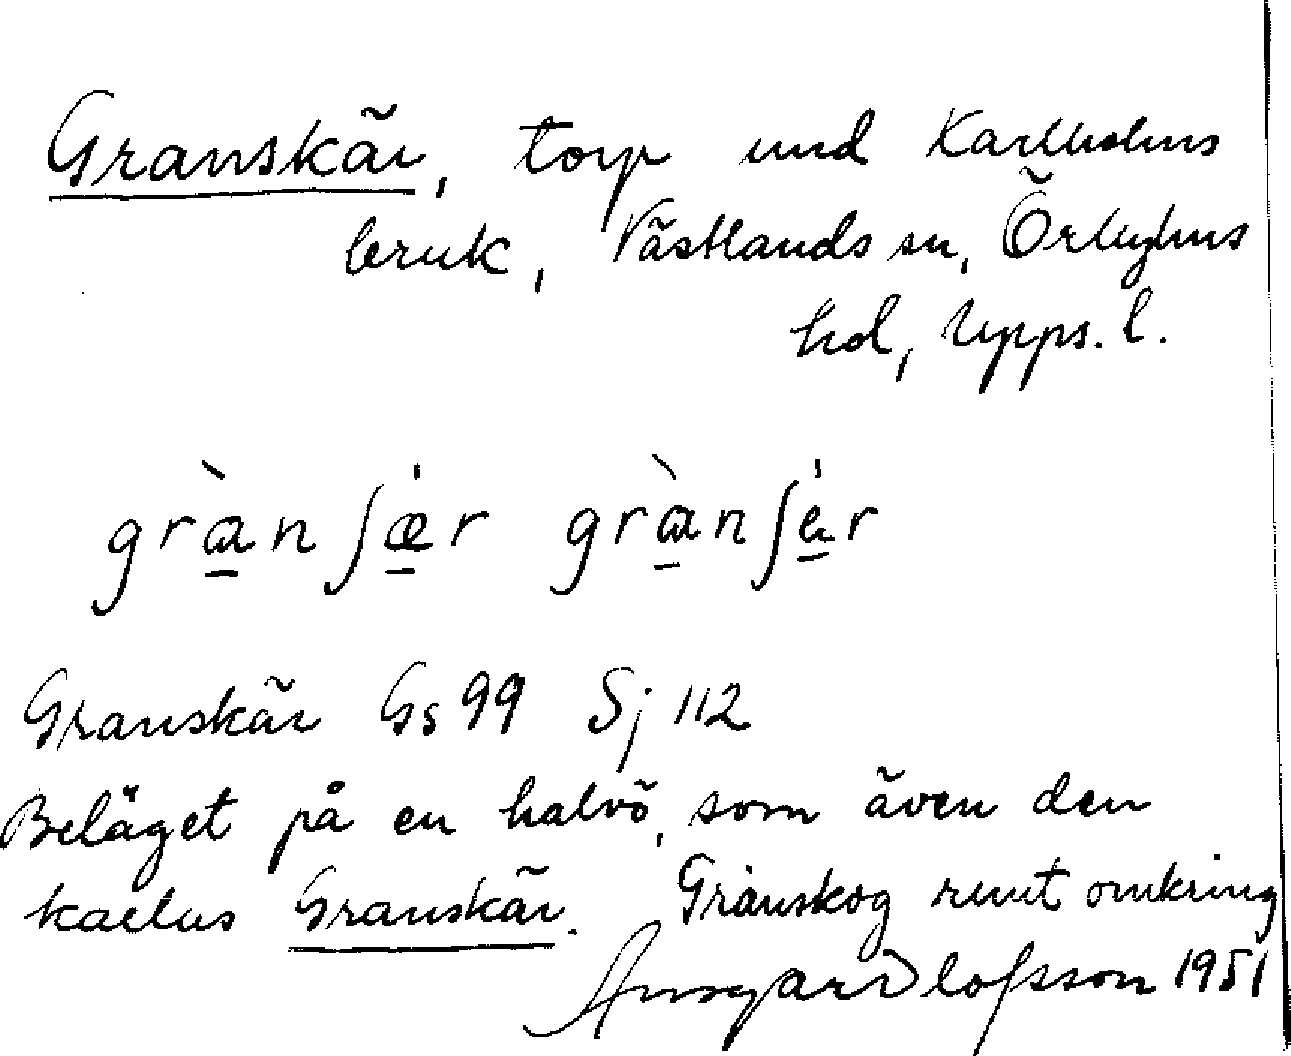 Granskär, torp und Karlholms
bruk, Västlands sn, Örbyhus
hd, Upps. l.
grànʃæ̀r grànʃèr
Granskär Gs 99 Sj 112
Beläget på en halvö, som även den
kallas Granskär. Granskog runt omkring
Ansgar Olofsson 1951